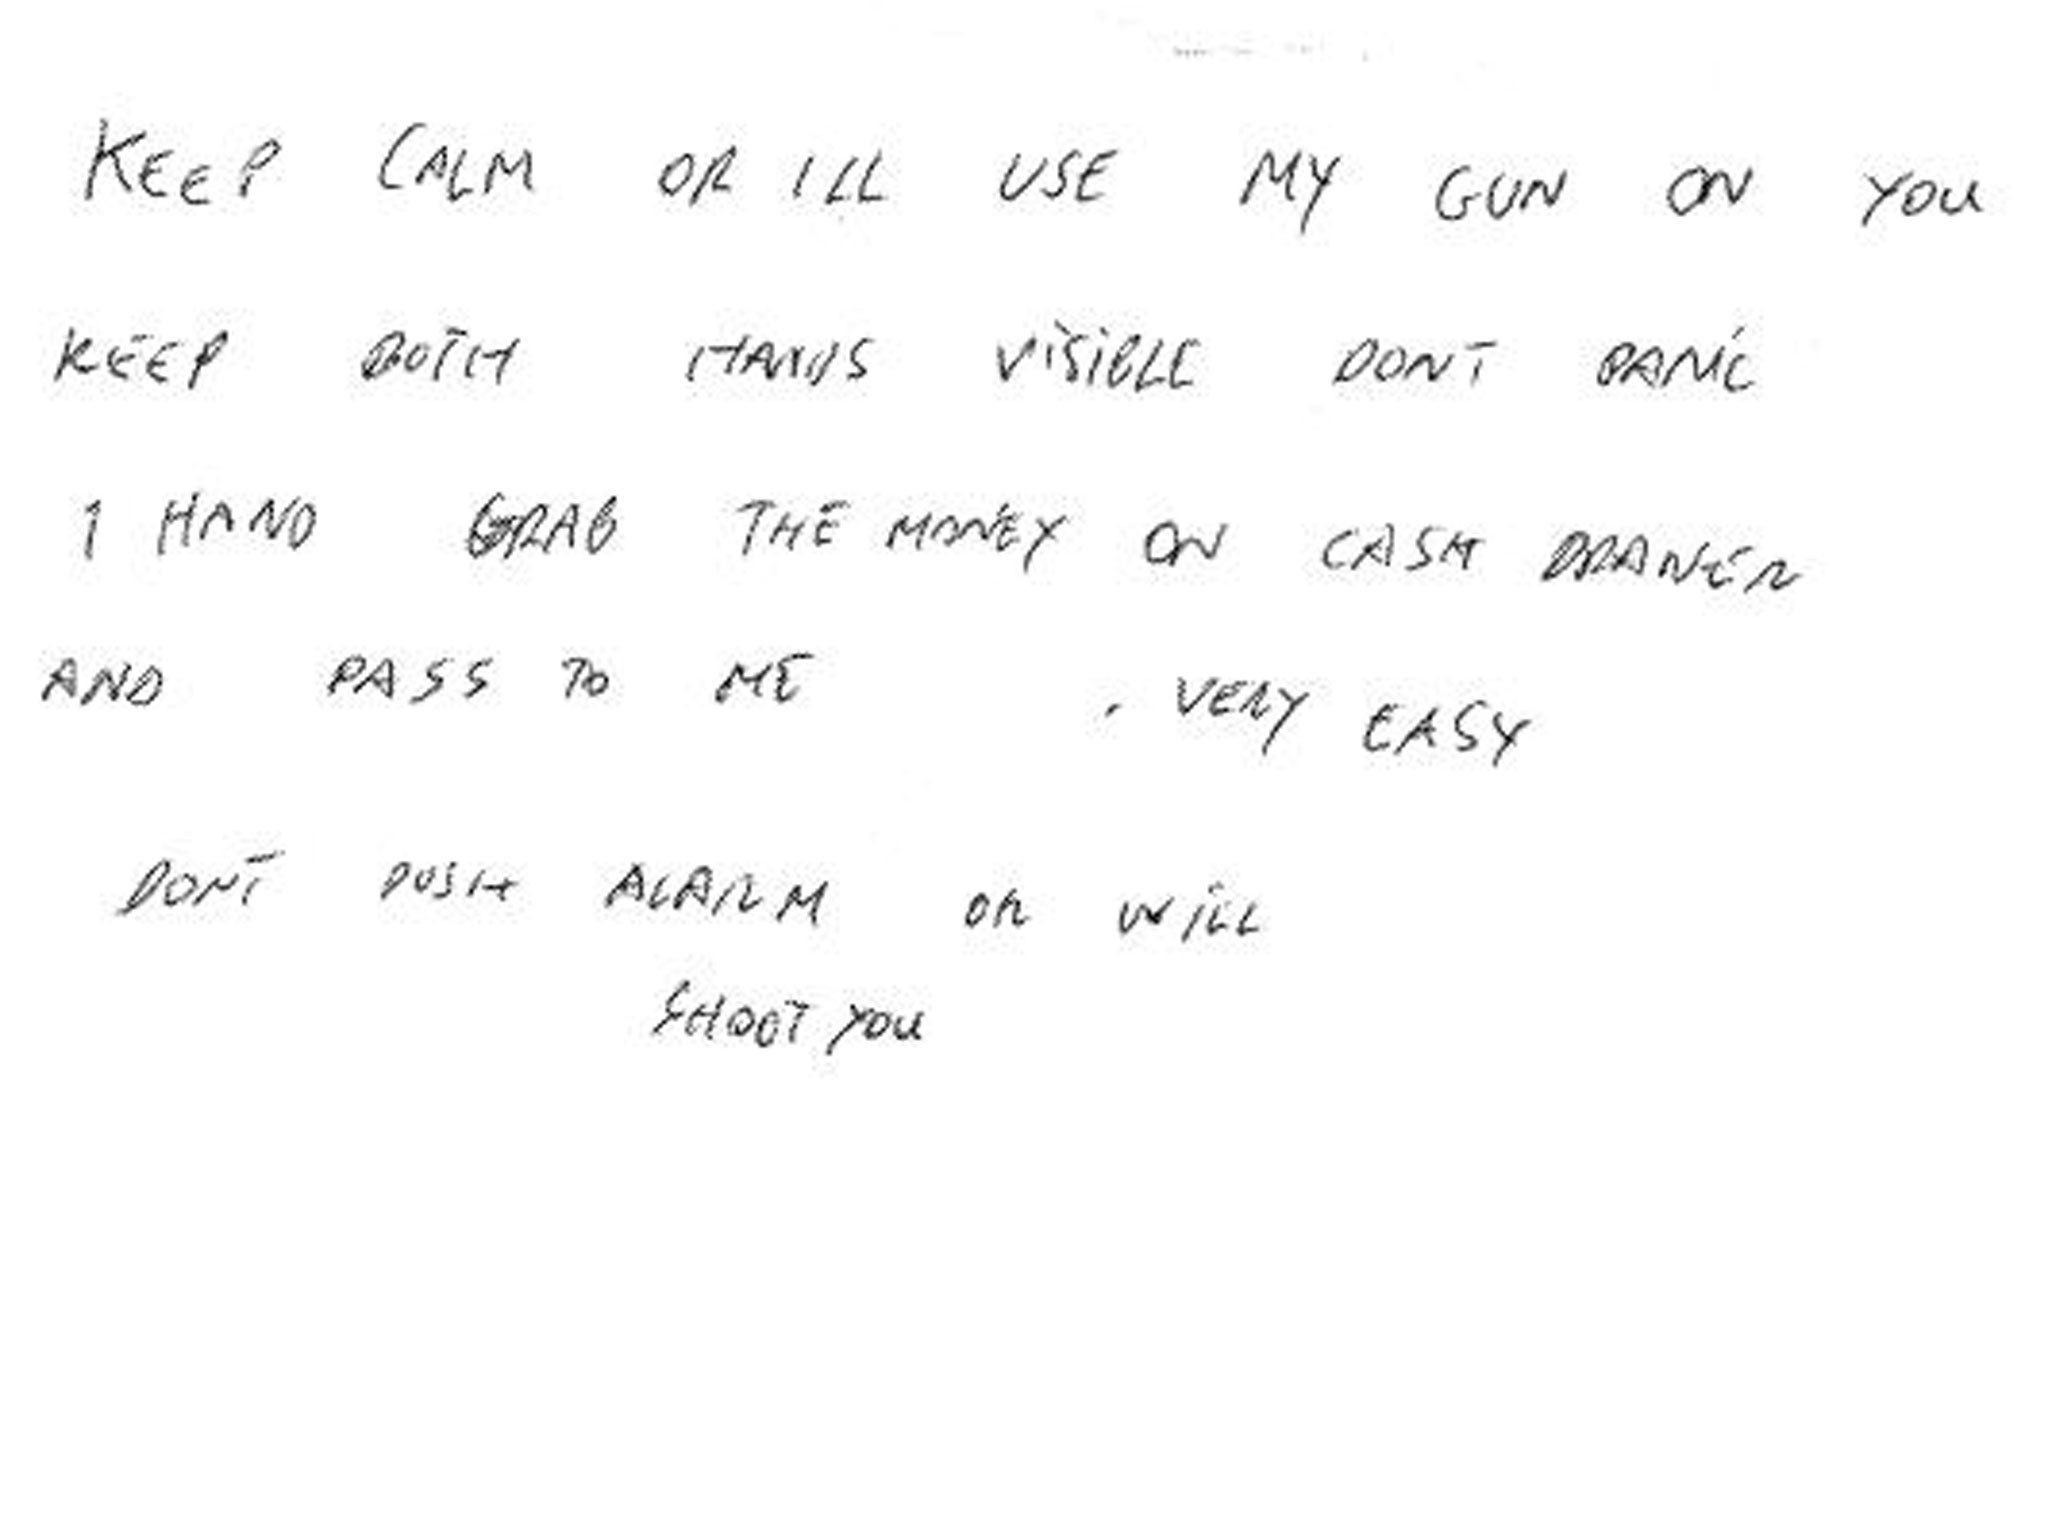 KEEP CALM OR ILL USE MY GUN ON YOU
KEEP BOTH HANDS VISIBLE DONT PANIC
1 HAND GRAB THE MONEY ON CASH DRAWER
AND PASS TO ME . VERY EASY
DONT PUSH ALARM OR WILL
SHOOT YOU